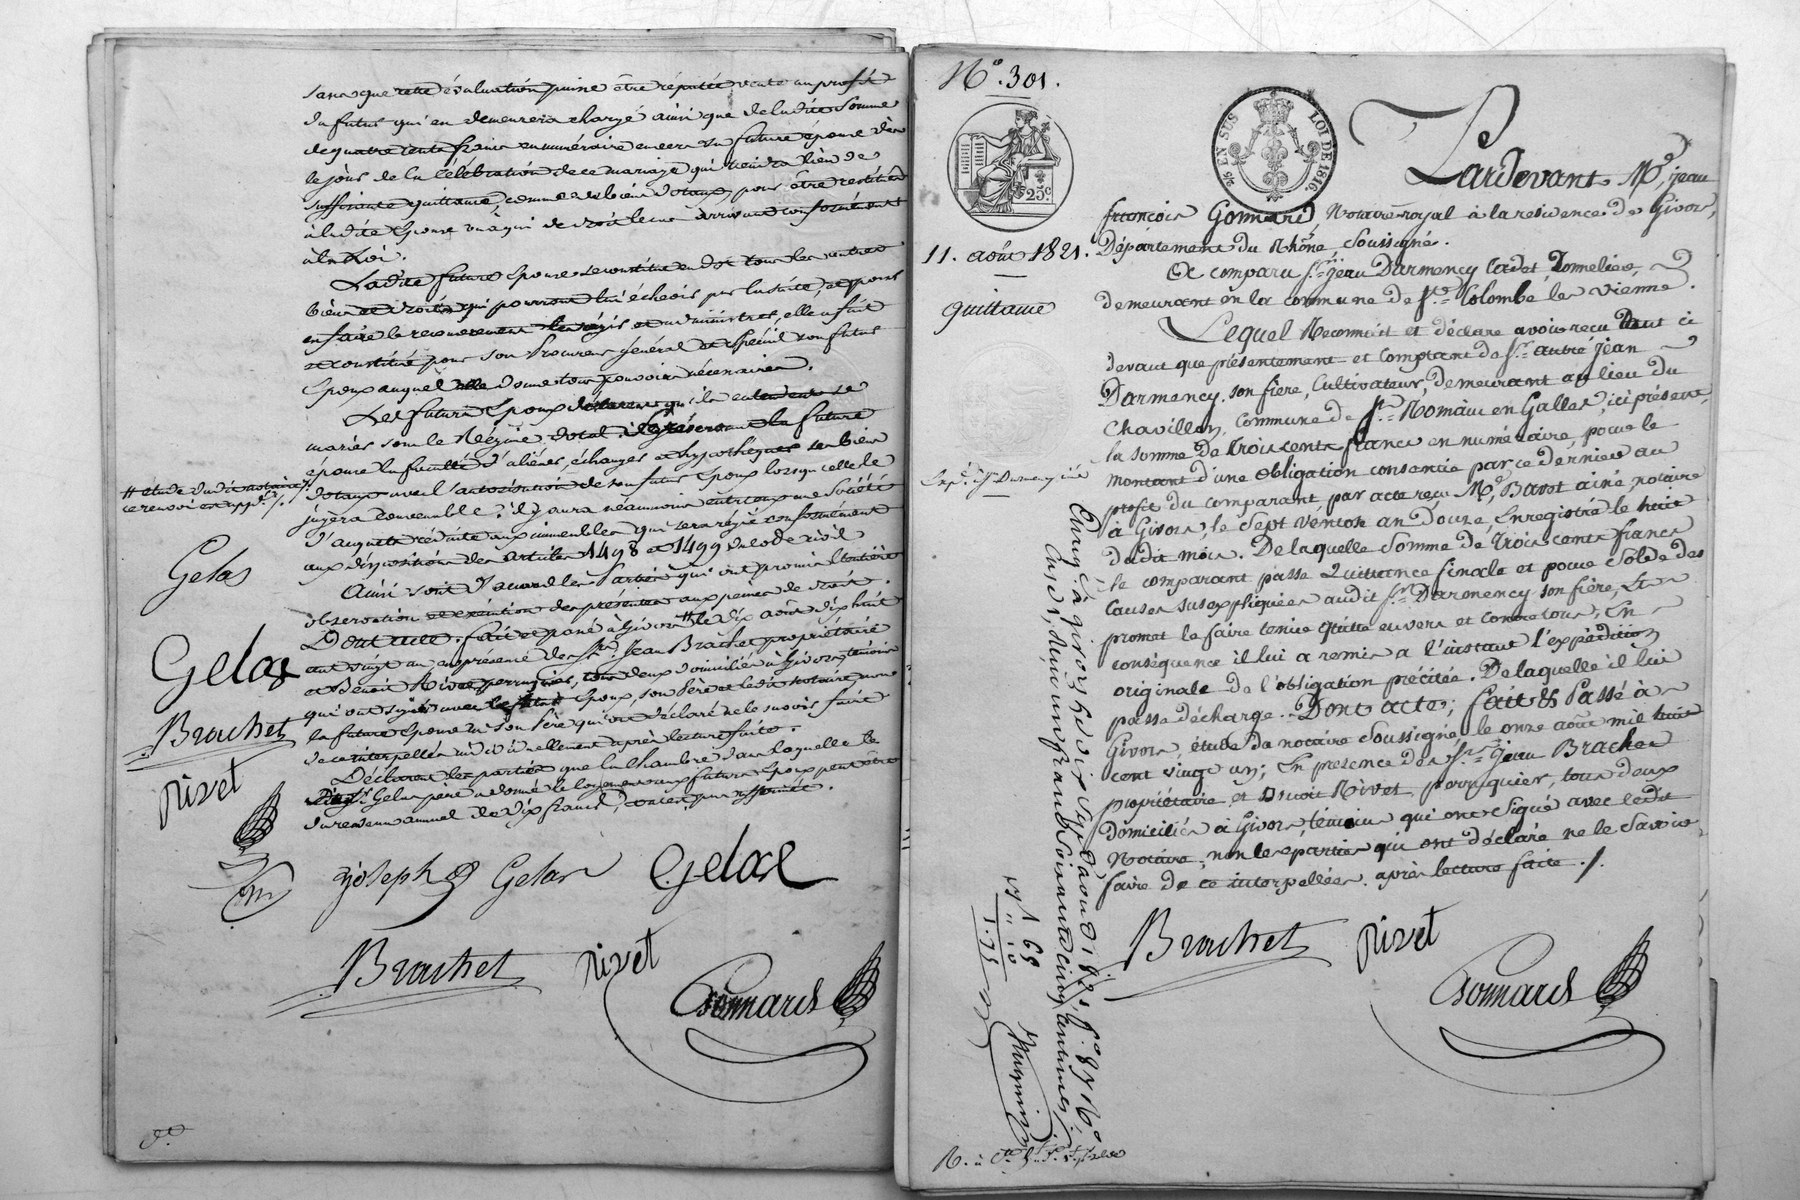 sans que cette évaluation puisse être réputée vente au profit
du futur qui en demeurera chargé ainsi que de ladite somme
de quatre cents francs en numéraire envers sa future épouse dès
le jour de la célébration de ce mariage qui tiendra lieu de
suffisante quittance, comme des biens dotaux, pour être restitués
à ladite épouse ou à qui de droit le cas arrivant conformément
à la Loi.
Ladite future Epouse se constitue en dot tous les autres
biens et droits qui pourront lui échoir par la suite, et pour
en faire le recouvrement les régir et administrer, elle a fait
et constitué pour son Procureur général et spécial son futur
Epoux auquel elle donne tous pouvoirs nécessaires.
Les futurs Epoux déclarent qu'ils entendent se
marier sous le Régime dotal, se réservant la future
épouse la faculté d'aliéner, échanger et hypothéquer ses biens
dotaux avec l'autorisation de son futur Epoux lorsqu'elle le
jugera convenable; il y aura néanmoins entr'eux une Société
d'acquets réduite aux immeubles qui sera régie conformément
aux dispositions des articles 1498 et 1499 du code civil
Ainsi sont d'accord les Parties qui ont promis l'entière
observation et exécution des présentes aux peines de droit.
Dont acte. fait et passé à Givors # le dix août dix huit
cent vingt un en présence des Srs Jean Brachet propriétaire
et Benoit Rivet perruquier, tous deux domiciliés à Givors, témoins
qui ont signé avec le futur Epoux, son Père et ledit notaire, non
la future Epouse ni son Père qui ont déclaré ne le savoir faire
de ce interpellés individuellement après lecture faite.
Déclarent les parties que la Chambre dans laquelle le
Sr Gelas père a donné le logement aux futurs Epoux peut être
du revenu annuel de dix francs,
# étude dudit notaire
ce renvoi est app.é
Gelas
Gelas
Brachet
Rivet
joseph Gelas Gelas
Brachet Rivet
Gonnard
No. 301.
EN SUS LOI DE 1816
25c
11. août 1821.
quittance
Pardevant Me, jean
françois Gonnard, Notaire royal à la residence de Givors,
Département du Rhône, Soussigné.
A comparu Sr. jean Darmency Cadet, Domelier,
demeurant en la commune de Ste Colombe les Vienne.
Lequel Reconnait et déclare avoir reçu tant ci
devant que présentement et Comptant de Sr autre jean
Darmency, son frère, Cultivateur, demeurant au lieu du
Chavillon, Commune de St. Romain en Gallet, ici présent,
la somme de trois cents francs en numéraire, pour le
montant d'une obligation consentie par ce dernier au
profit du comparant, par acte reçu Me, Barot ainé, notaire
à Givors, le Sept ventose an Douze, Enregistré le huit
dudit mois. De laquelle Somme de trois cents francs
le comparant passe Quittance finale et pour Solde des
causes susexpliquées audit Sr Darmency son frère, Et
promet le faire tenir Quitte envers et contre tous, En
conséquence il lui a remis à l'instant l'expédition
originale de l'obligation précitée. De laquelle il lui
passe décharge. Dont acte; fait & Passé à
Givors, étude du notaire Soussigné, le onze août mil huit
cent vingt un; En presence des Srs jean Brachet
propriétaire et Benoit Rivet perruquier, tous deux
domiciliés à Givors, témoins qui ont signé avec ledit
Notaire, non les parties qui ont déclaré ne le Savoir
faire de ce interpellées. après lecture faite ./.
Brachet Rivet
Gonnard